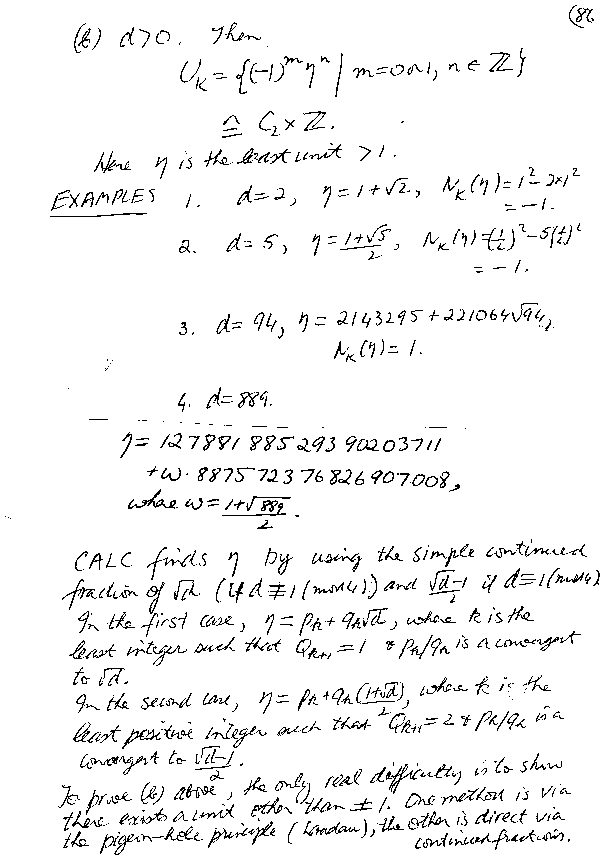 (86
(b) d>0. Then
U_K = {(-1)^m η^n | m=0 or 1, n ∈ ℤ}
≅ C_2 × ℤ.
Here η is the least unit >1.
EXAMPLES 1. d=2, η=1+√2, N_K(η)=1²-2×1²
=-1.
2. d=5, η=(1+√5)/2, N_K(η)=(1/2)²-5(1/2)²
=-1.
3. d=94, η=2143295+221064√94,
N_K(η)=1.
4. d=889.
η=12788188529390203711
+ω·887572376826907008,
where ω=(1+√889)/2.
CALC finds η by using the simple continued
fraction of √d (if d≢1(mod 4)) and (√d-1)/2 if d≡1(mod 4)
In the first case, η=p_k+q_k√d, where k is the
least integer such that Q_{k+1}=1 & p_k/q_k is a convergent
to √d.
In the second case, η=p_k+q_k(1+√d)/2, where k is the
least positive integer such that Q_{k+1}=2 & p_k/q_k is a
convergent to (√d-1)/2.
To prove (b) above, the only real difficulty is to show
there exists a unit other than ±1. One method is via
the pigeon-hole principle (Landau), the other is direct via
continued fractions.